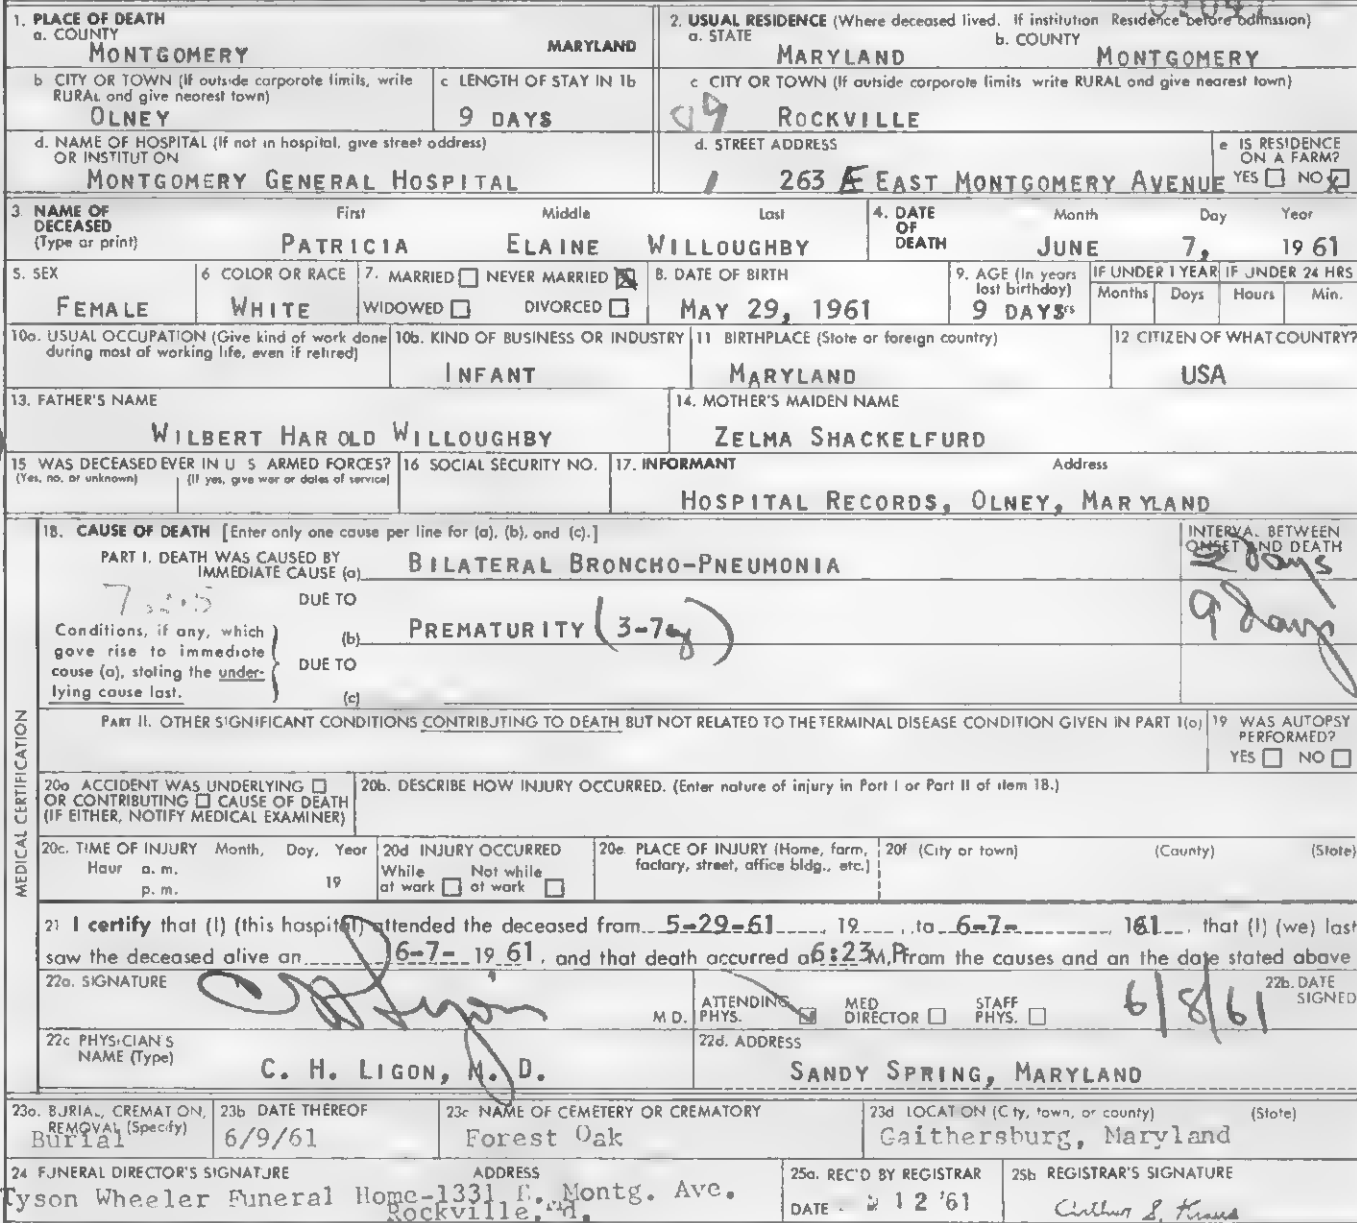 1. PLACE OF DEATH
a. COUNTY
MONTGOMERY MARYLAND
2. USUAL RESIDENCE (Where deceased lived. If institution Residence before admission)
a. STATE b. COUNTY
MARYLAND MONTGOMERY
b CITY OR TOWN (If outside corporate limits, write RURAL and give nearest town)
OLNEY
c LENGTH OF STAY IN 1b
9 DAYS
c CITY OR TOWN (If outside corporate limits write RURAL and give nearest town)
ROCKVILLE
d. NAME OF HOSPITAL (If not in hospital, give street address)
OR INSTITUT ON
MONTGOMERY GENERAL HOSPITAL
d. STREET ADDRESS
263 E EAST MONTGOMERY AVENUE
e IS RESIDENCE
ON A FARM?
YES NO X
3 NAME OF
DECEASED
(Type or print)
First Middle Last
PATRICIA ELAINE WILLOUGHBY
4. DATE
OF
DEATH
Month Day Year
JUNE 7, 1961
5. SEX
FEMALE
6 COLOR OR RACE
WHITE
7. MARRIED NEVER MARRIED X
WIDOWED DIVORCED
8. DATE OF BIRTH
MAY 29, 1961
9. AGE (In years
last birthday)
9 DAYS
IF UNDER 1 YEAR IF UNDER 24 HRS
Months Days Hours Min.
10a. USUAL OCCUPATION (Give kind of work done
during most of working life, even if retired)
10b. KIND OF BUSINESS OR INDUSTRY
INFANT
11 BIRTHPLACE (State or foreign country)
MARYLAND
12 CITIZEN OF WHAT COUNTRY?
USA
13. FATHER'S NAME
WILBERT HAROLD WILLOUGHBY
14. MOTHER'S MAIDEN NAME
ZELMA SHACKELFURD
15 WAS DECEASED EVER IN U S ARMED FORCES?
(Yes, no, or unknown) (If yes, give war or dates of service)
16 SOCIAL SECURITY NO.
17. INFORMANT Address
HOSPITAL RECORDS, OLNEY, MARYLAND
MEDICAL CERTIFICATION
18. CAUSE OF DEATH [Enter only one cause per line for (a), (b), and (c).]
INTERVAL BETWEEN
ONSET AND DEATH
PART I. DEATH WAS CAUSED BY
IMMEDIATE CAUSE (a) BILATERAL BRONCHO-PNEUMONIA
Days
DUE TO
Conditions, if any, which
gave rise to immediate
cause (a), stating the under-
lying cause last.
(b) PREMATURITY (3-7
9 Days
DUE TO
(c)
PART II. OTHER SIGNIFICANT CONDITIONS CONTRIBUTING TO DEATH BUT NOT RELATED TO THE TERMINAL DISEASE CONDITION GIVEN IN PART I(a)
19 WAS AUTOPSY
PERFORMED?
YES NO
20a ACCIDENT WAS UNDERLYING
OR CONTRIBUTING CAUSE OF DEATH
(IF EITHER, NOTIFY MEDICAL EXAMINER)
20b. DESCRIBE HOW INJURY OCCURRED. (Enter nature of injury in Part I or Part II of item 18.)
20c. TIME OF INJURY Month, Day, Year
Hour a. m.
p. m. 19
20d INJURY OCCURRED
While Not while
at work at work
20e. PLACE OF INJURY (Home, farm,
factory, street, office bldg., etc.)
20f (City or town) (County) (State)
21 I certify that (I) (this hospital) attended the deceased from 5-29-61, 19 , to 6-7- 161, that (I) (we) last
saw the deceased alive on 6-7- 19 61, and that death occurred at 6:23 M, P from the causes and on the date stated above
22a. SIGNATURE
C H Ligon
M D.
ATTENDING
PHYS.
MED
DIRECTOR
STAFF
PHYS.
22b. DATE
SIGNED
6/8/61
22c PHYSICIAN S
NAME (Type)
C. H. LIGON, M. D.
22d. ADDRESS
SANDY SPRING, MARYLAND
23a. BURIAL, CREMAT ON,
REMOVAL (Specify)
Burial
23b DATE THEREOF
6/9/61
23c NAME OF CEMETERY OR CREMATORY
Forest Oak
23d LOCAT ON (C ty, town, or county) (State)
Gaithersburg, Maryland
24 FUNERAL DIRECTOR'S SIGNATURE ADDRESS
Tyson Wheeler Funeral Home-1331 E. Montg. Ave.
Rockville, Md.
25a. REC'D BY REGISTRAR
DATE 12 '61
25b REGISTRAR'S SIGNATURE
Arthur S. Kraus